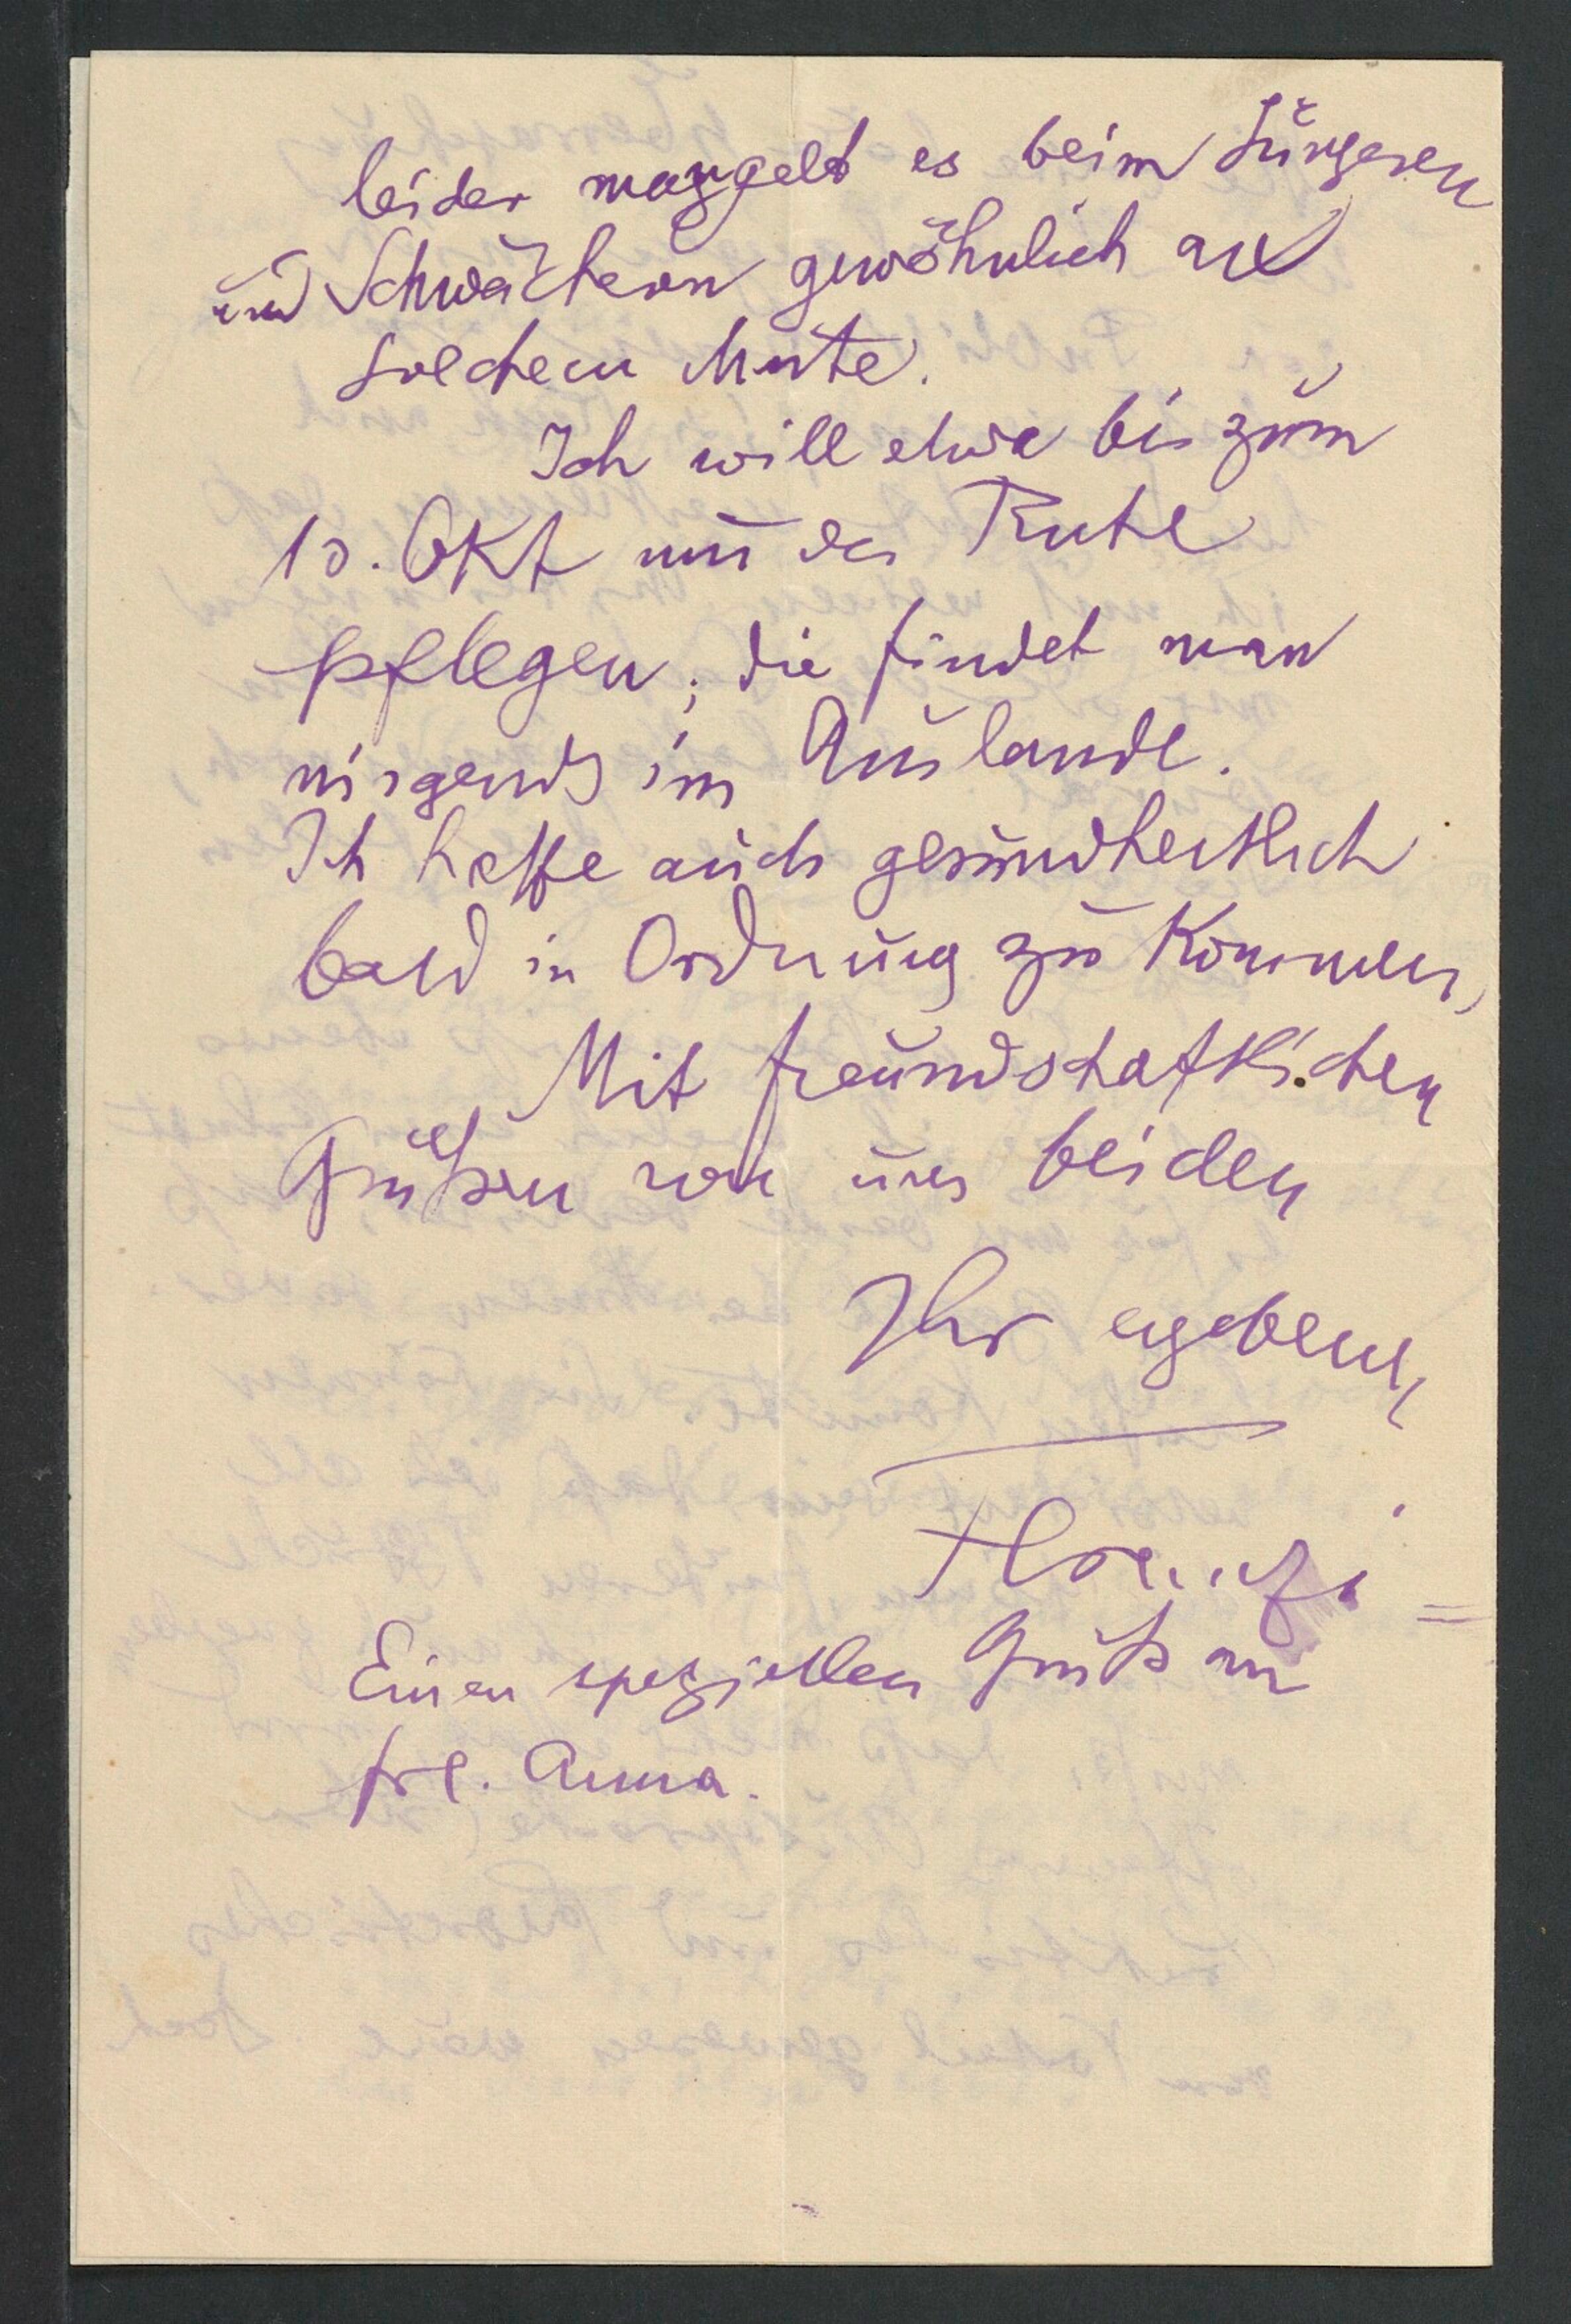 leider mangelt es beim Jüngeren
und Schwächeren gewöhnlich an
solchem Mute.
Ich will etwa bis zum
10. Okt nur der Ruhe
pflegen; die findet man
nirgends im Auslande.
Ich hoffe auch gesundheitlich
bald in Ordnung zu kommen,
Mit freundschaftlichen
Grüßen von uns beiden
Ihr ergebener
Einen speziellen Gruß an
Frl. Anna.